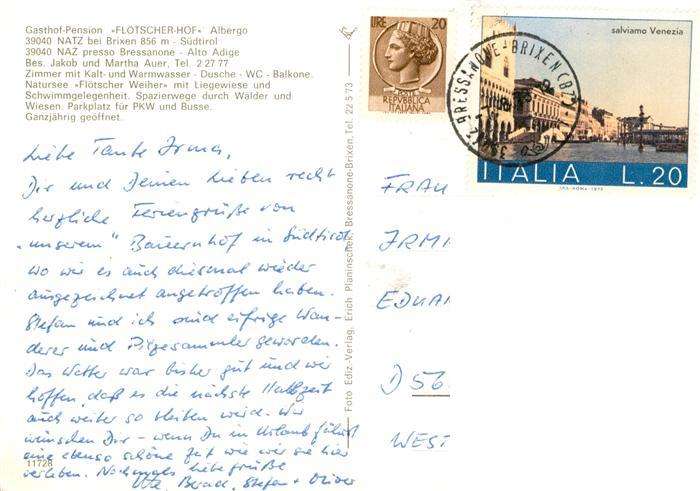 Gasthof-Pension «FLÖTSCHER-HOF» Albergo
39040 NATZ bei Brixen 856 m - Südtirol
39040 NAZ presso Bressanone - Alto Adige
Bes. Jakob und Martha Auer, Tel. 2 27 77
Zimmer mit Kalt- und Warmwasser - Dusche - WC - Balkone.
Natursee «Flötscher Weiher» mit Liegewiese und
Schwimmgelegenheit. Spazierwege durch Wälder und
Wiesen. Parkplatz für PKW und Busse.
Ganzjährig geöffnet.
Liebe Tante Irma,
Dir und Deinen Lieben recht
herzliche Feriengrüße von
„unserem" Bauernhof in Südtirol
wo wir es auch diesmal wieder
ausgezeichnet angetroffen haben.
Stefan und ich sind eifrige Wan-
derer und Pilzesammler geworden.
Das Wetter war bisher gut und wir
hoffen, daß es die nächste Halbzeit
auch weiter so bleiben wird. Wir
wünschen Dir - wenn Du in Urlaub fährst
eine ebenso schöne Zeit wie wir sie hier
verleben. Nochmals liebe Grüße
Bernd, Stefan + Oliver
11728
Foto Ediz.-Verlag, Erich Planinschek, Bressanone-Brixen, Tel. 22 5 73
LIRE 20
REPVBBLICA
ITALIANA
salviamo Venezia
ITALIA L. 20
BRESSANONE - BRIXEN (BZ)
FRAU
IRM
EDUA
D 56
WEST